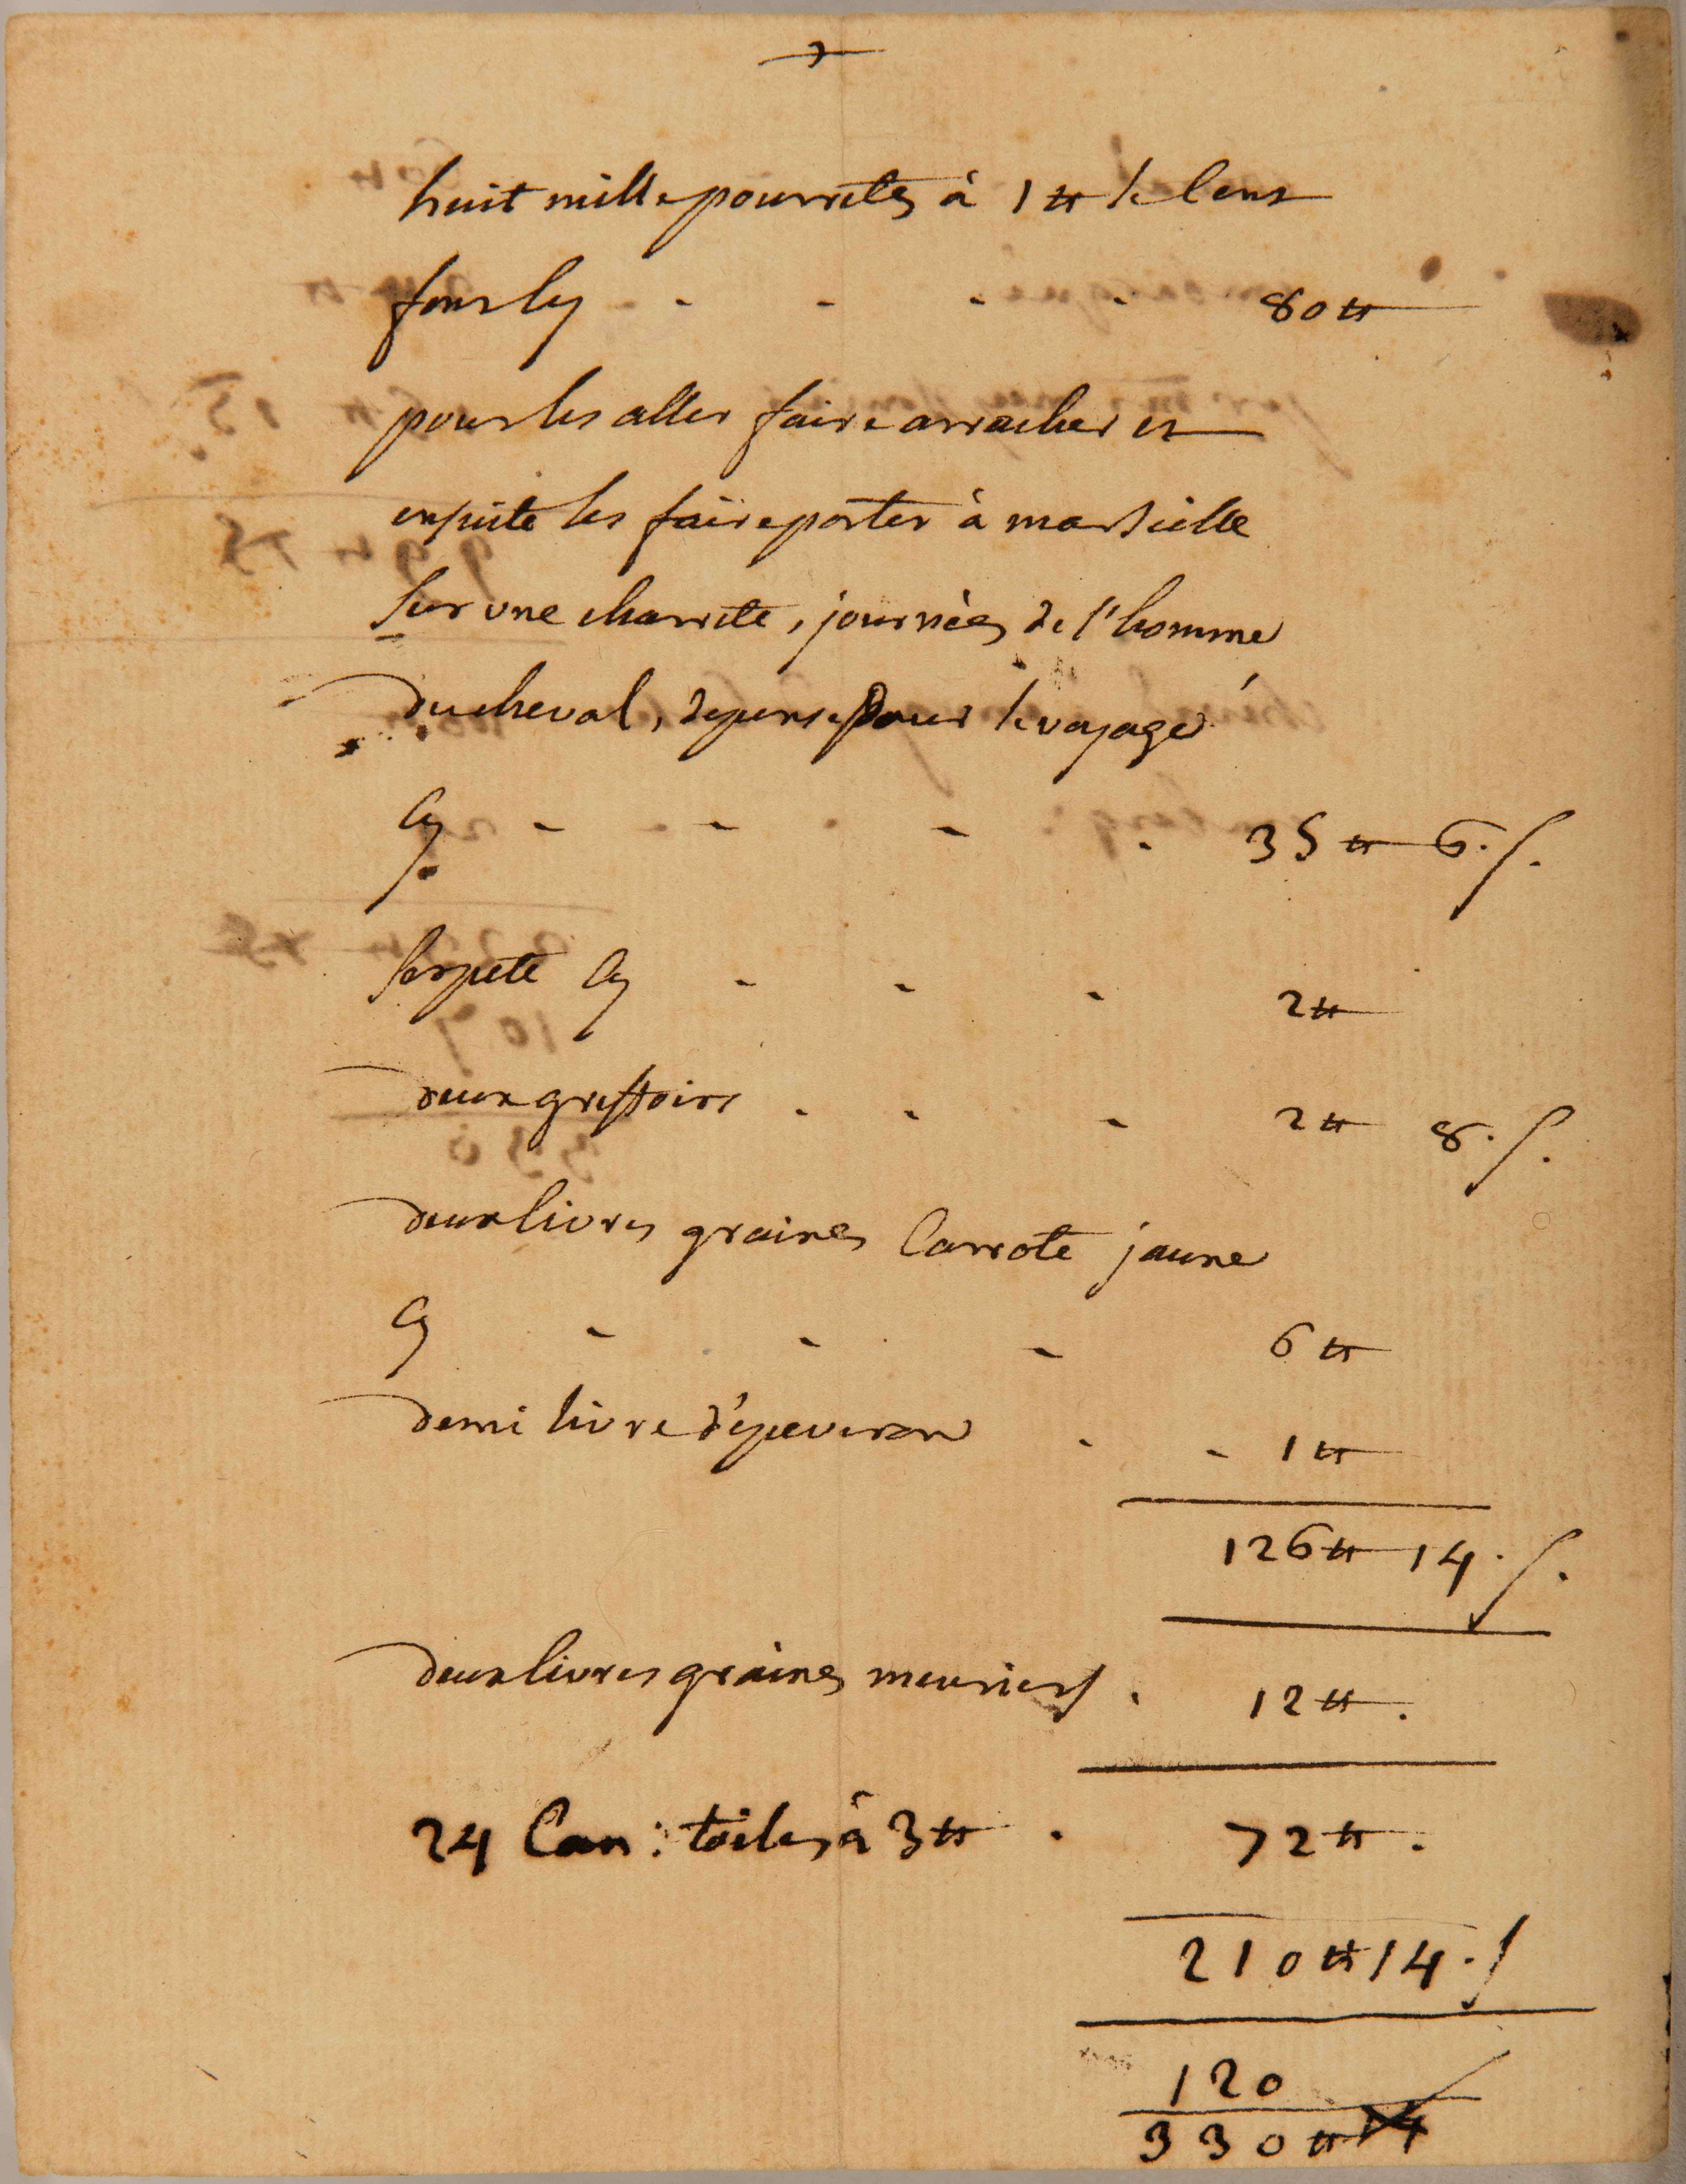 huit mille pourretes à 1 ₶ le Cent
font Cy - - - - 80 ₶
pour les aller faire arracher et
ensuite les faire porter à marseille
Sur une charrete, journées de l'homme
du cheval, depense pour le voyage
Cy - - - . 35 ₶ 6. s.
serpete Cy - - - 2 ₶
deux greffoirs . - - 2 ₶ 8. s.
deux livres graines Carrote jaune
Cy - - - 6 ₶
demi livre d'eperveron - - 1 ₶
126 ₶ 14. s.
deux livres graines meuriers . 12 ₶.
24 Can: toiles à 3 ₶ . 72 ₶.
210 ₶ 14. s
120
330 ₶ 14